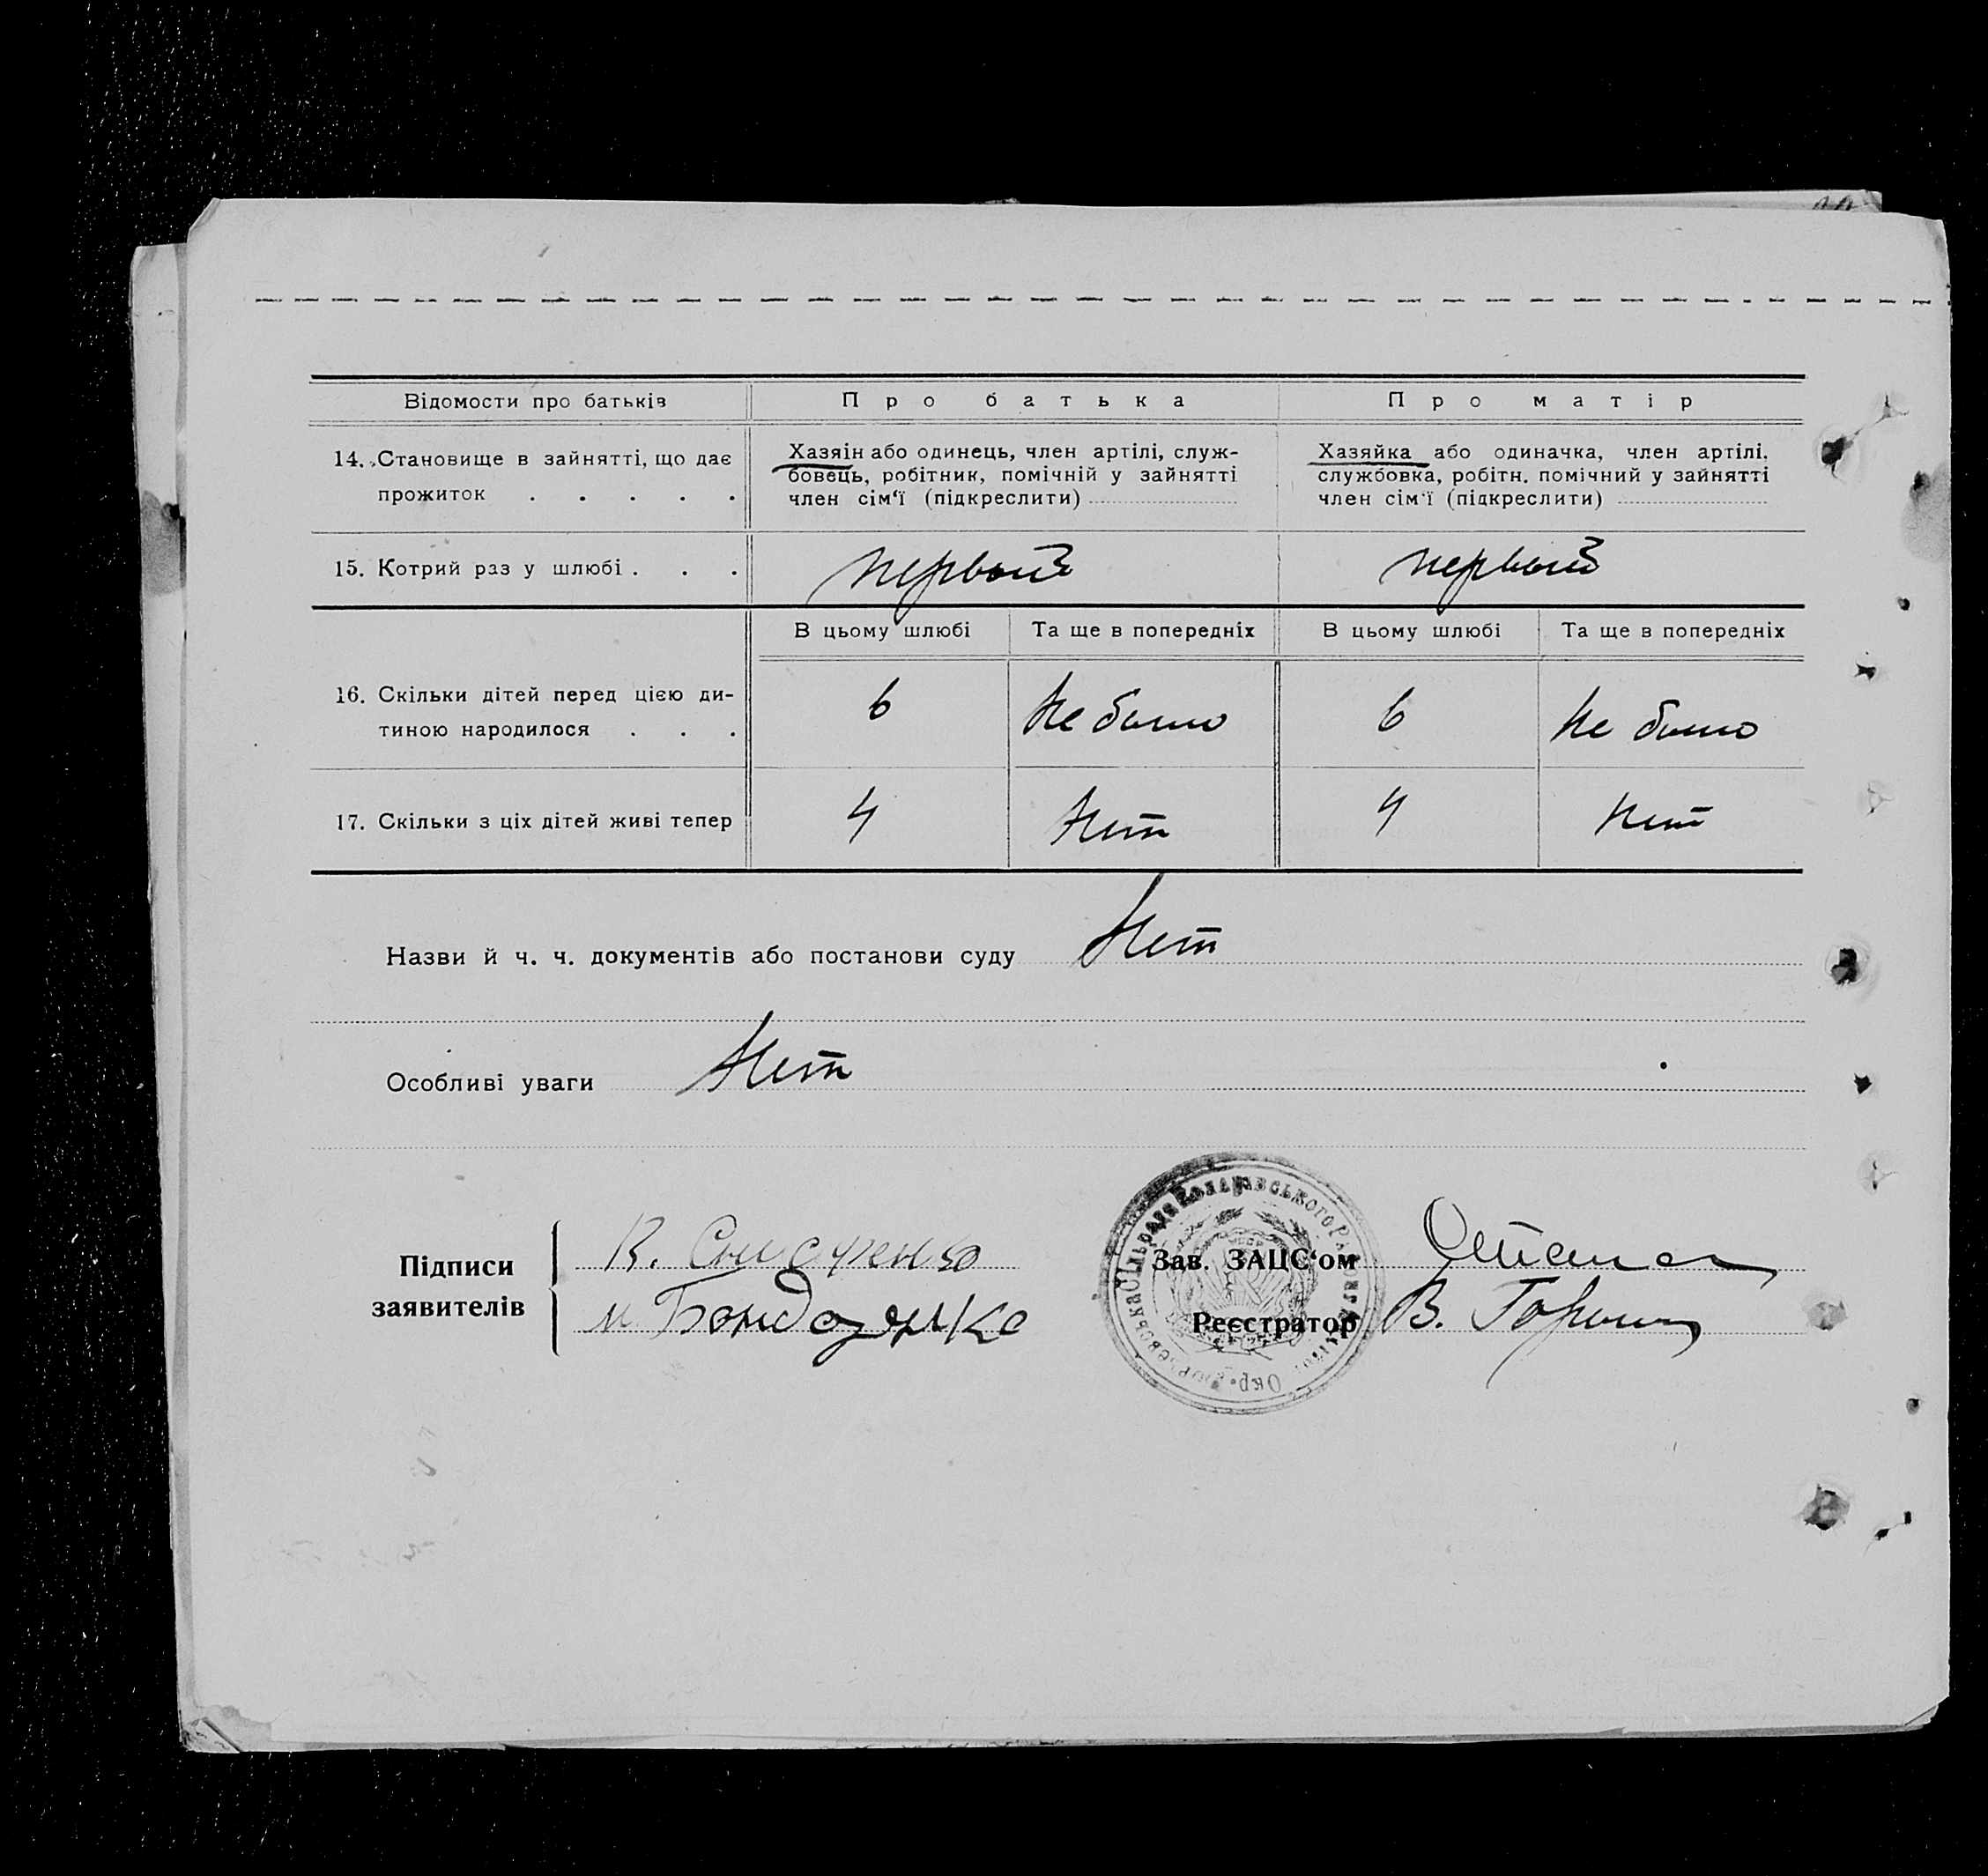 Відомости про батьків
Про батька
Про матір
14. Становище в зайнятті, що дає
прожиток . . . . .
Хазяін або одинець, член артілі, служ-
бовець, робітник, помічній у зайнятті
член сім‘ї (підкреслити)
Хазяйка або одиначка, член артілі.
службовка, робітн. помічний у зайнятті
член сім‘ї (підкреслити)
15. Котрий раз у шлюбі . . .
первый
первый
В цьому шлюбі
Та ще в попередніх
В цьому шлюбі
Та ще в попередніх
16. Скільки дітей перед цією ди-
тиною народилося . . .
6
Не было
6
Не было
17. Скільки з ціх дітей живі тепер
4
Нет
4
Нет
Назви й ч. ч. документів або постанови суду Нет
Особливі уваги Нет
Підписи
заявителів
В.
м
Зав. ЗАЦС‘ом
Реєстратор В.
Окр.